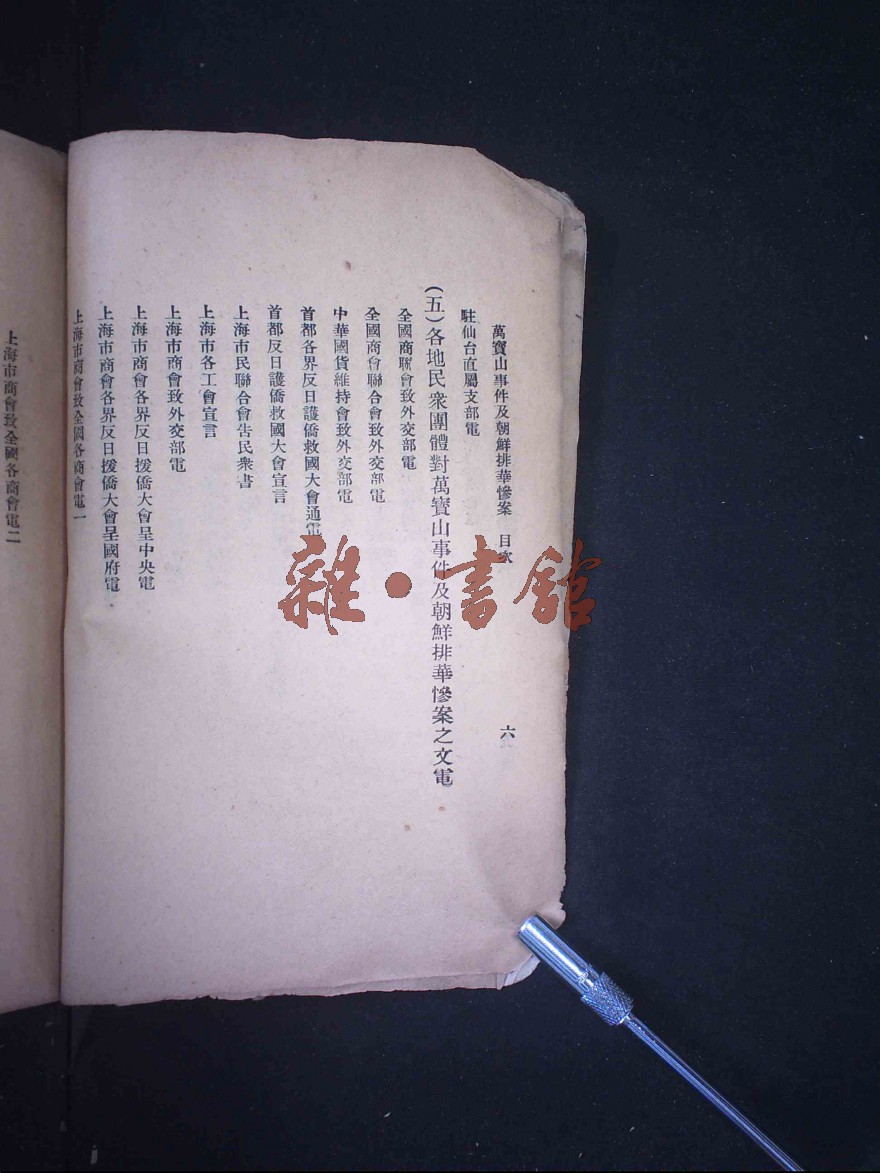 萬寶山事件及朝鮮排華慘案 目次 六
駐仙台直屬支部電
(五)各地民衆團體對萬寶山事件及朝鮮排華慘案之文電
全國商聯會致外交部電
全國商會聯合會致外交部電
中華國貨維持會致外交部電
首都各界反日護僑救國大會通電
首都反日護僑救國大會宣言
上海市民聯合會告民衆書
上海市各工會宣言
上海市商會致外交部電
上海市商會各界反日援僑大會呈中央電
上海市商會各界反日援僑大會呈國府電
上海市商會致全國各商會電一
上海市商會致全國各商會電二
雜·書館